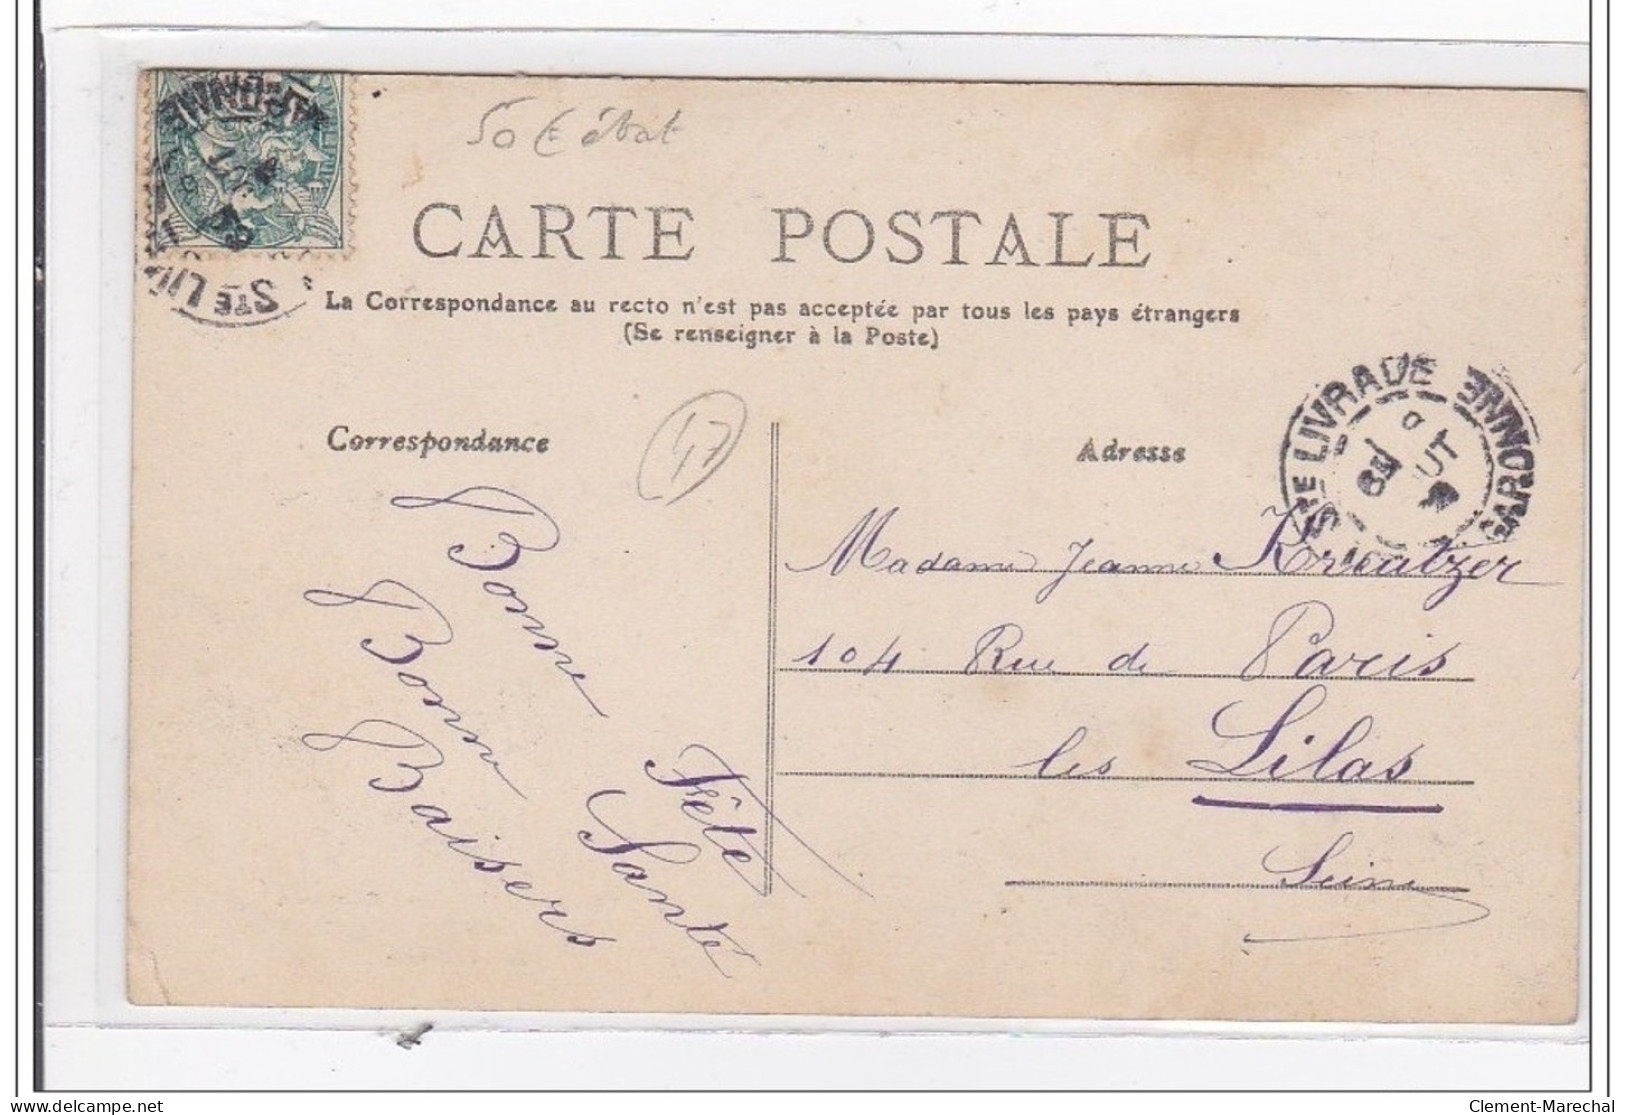 50 € état
CARTE POSTALE
La Correspondance au recto n'est pas acceptée par tous les pays étrangers
(Se renseigner à la Poste)
Correspondance
47
Adresse
STE LIVRADE
GARONNE
Bonne Fête
Bonne Santé
Baisers
Madame Jeanne Kreutzer
104 Rue de Paris
les Lilas
Seine
STE LIV
GARONNE
Clement-Marechal